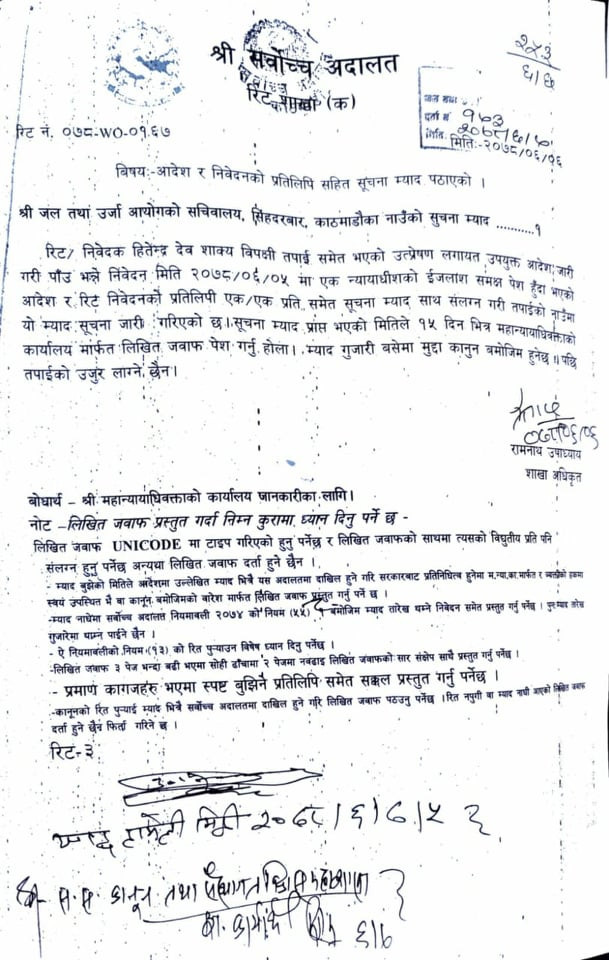 श्री सर्वोच्च अदालत
रिट शाखा (क)
२५३
६/६
दर्ता नं १७३
मिति:-२०७८/०६/०६
रिट नं. ०७८-WO-०१६७
विषय:-आदेश र निवेदनको प्रतिलिपि सहित सूचना म्याद पठाएको ।
श्री जल तथा उर्जा आयोगको सचिवालय, सिंहदरबार, काठमाडौंका नाउँको सुचना म्याद ...........१
रिट/ निवेदक हितेन्द्र देव शाक्य विपक्षी तपाई समेत भएको उत्प्रेषण लगायत उपयुक्त आदेश जारी
गरी पाउँ भन्ने निवेदन मिति २०७८/०६/०५ मा एक न्यायाधीशको ईजलाश समक्ष पेश हुँदा भएको
आदेश र रिट निवेदनको प्रतिलिपी एक/एक प्रति समेत सूचना म्याद साथ संलग्न गरी तपाईको नाउँमा
यो म्याद सूचना जारी गरिएको छ। सूचना म्याद प्राप्त भएको मितिले १५ दिन भित्र महान्यायाधिवक्ताको
कार्यालय मार्फत लिखित जवाफ पेश गर्नु होला। म्याद गुजारी बसेमा मुद्दा कानुन बमोजिम हुनेछ ।। पछि
तपाईको उजुर लाग्ने छैन।
०७८/०६/०६
रामनाथ उपाध्याय
शाखा अधिकृत
बोधार्थ – श्री महान्यायाधिवक्ताको कार्यालय जानकारीका लागि।
नोट –लिखित जवाफ प्रस्तुत गर्दा निम्न कुरामा ध्यान दिनु पर्ने छ -
लिखित जवाफ UNICODE मा टाइप गरिएको हुनु पर्नेछ र लिखित जवाफको साथमा त्यसको विधुतीय प्रति पनि
संलग्न हुनु पर्नेछ अन्यथा लिखित जवाफ दर्ता हुने छैन ।
- म्याद बुझेको मितिले आदेशमा उल्लेखित म्याद भित्रै यस अदालतमा दाखिल हुने गरि सरकारबाट प्रतिनिधित्व हुनेमा म.न्या.का.मार्फत र
स्वयं उपस्थित भै वा कानून बमोजिमको वारेश मार्फत लिखित जवाफ प्रस्तुत गर्नु पर्ने छ ।
-म्याद नाघेमा सर्वोच्च अदालत नियमावली २०७४ को नियम (५५) बमोजिम म्याद तारेख थाम्ने निवेदन समेत प्रस्तुत गर्नु पर्नेछ । पुनःम्याद तारेख
गुजारेमा थाम्न पाईने छैन ।
- ऐ नियमावलीको नियम (१३) को रित पुऱ्याउन विषेष ध्यान दिनु पर्नेछ ।
-लिखित जवाफ ३ पेज भन्दा बढी भएमा सोही ढाँचामा २ पेजमा नबढाइ लिखित जवाफको सार संक्षेप साथै प्रस्तुत गर्नु पर्नेछ ।
- प्रमाण कागजहरु भएमा स्पष्ट बुझिने प्रतिलिपि समेत सक्कल प्रस्तुत गर्नु पर्नेछ ।
-कानूनको रित पुऱ्याई म्याद भित्रै सर्वोच्च अदालतमा दाखिल हुने गरि लिखित जवाफ पठउनु पर्नेछ । रित नपुगी वा म्याद नाघी आएको लिखित जवाफ
दर्ता हुने छैन फिर्ता गरिने छ ।
रिट-३
मिती २०७८/६/७/५
कानून तथा
६/७